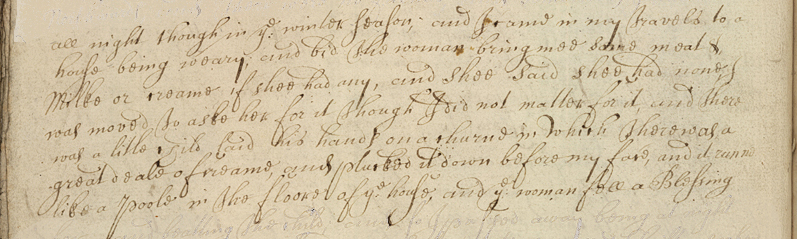 all night though in ye winter season; and I came in my travels to a
house being weary, and bid the woman bring mee some meat &
Milke or creame if shee had any, and shee said shee had none I
was moved to aske her for it though I did not matter for it, and there
was a litle child laid his hands on a churne in which there was a
great deale of creame, and plucked it down before my face, and it runn
like a poole in the floore of ye house, and ye woman fell a Blessing